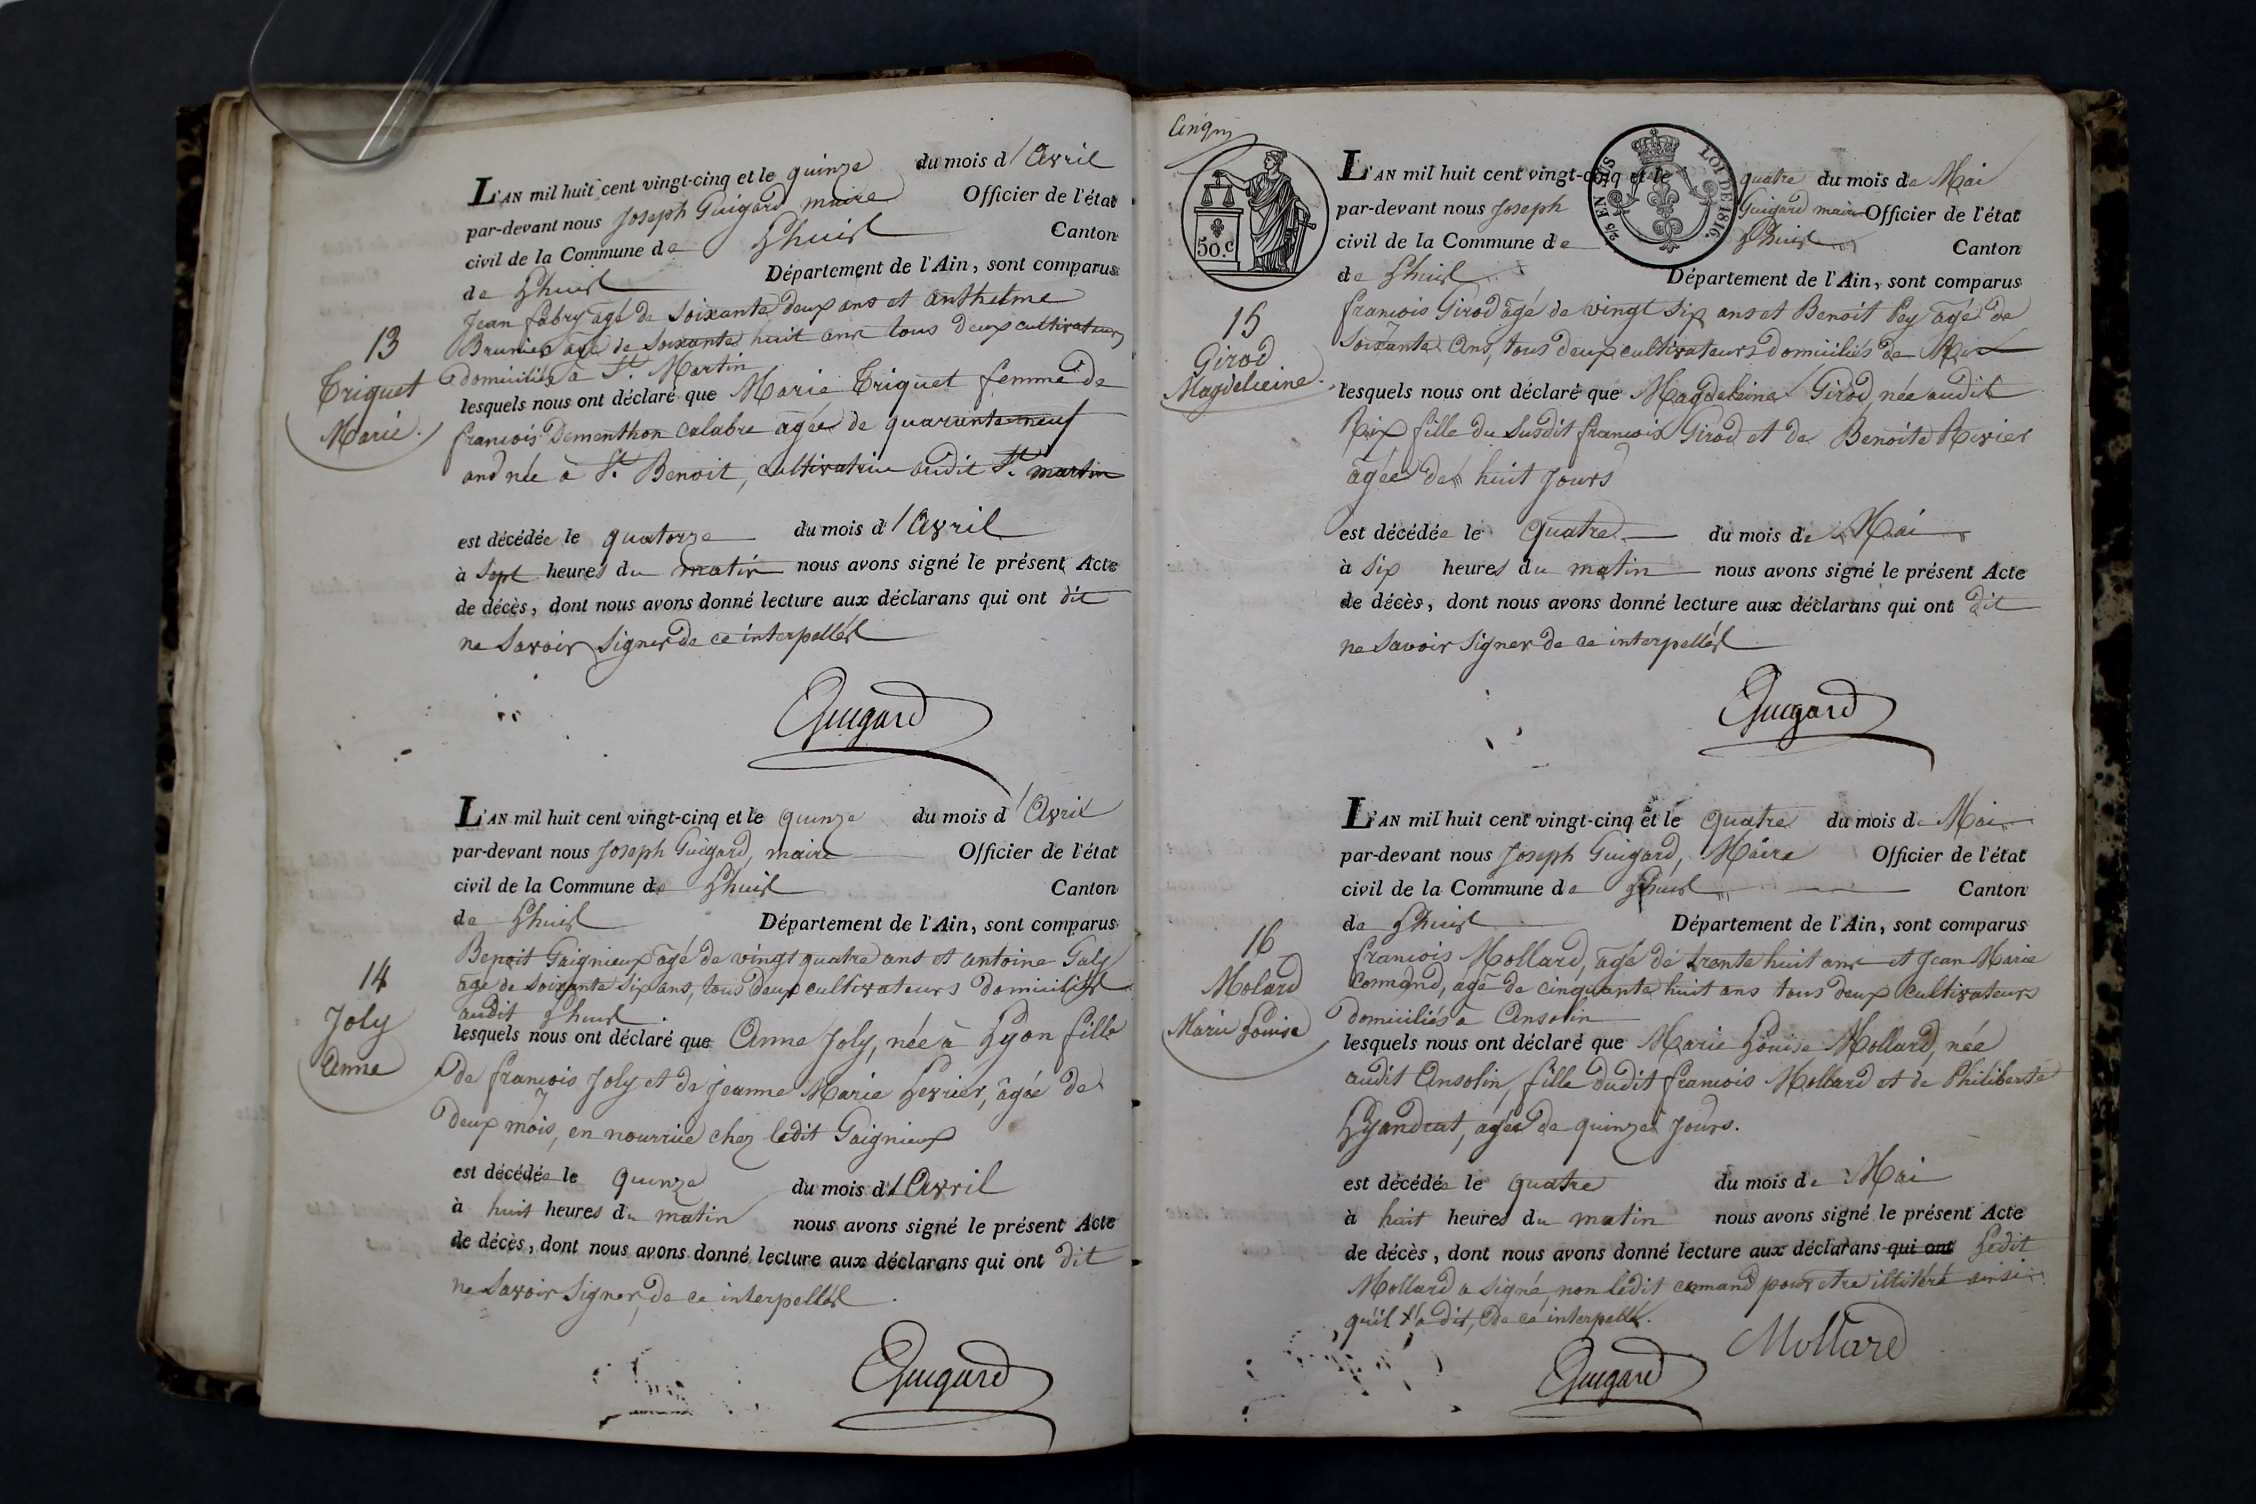 L'AN mil huit cent vingt-cinq et le quinze du mois d'Avril
par-devant nous Joseph Guigard maire Officier de l'état
civil de la Commune de Lhuis Canton
de Lhuis Département de l'Ain, sont comparus
Jean fabry agé de Soixante deux ans et anthelme
Brunier agé de Soixante huit ans tous deux cultivateurs
domiciliés à St. Martin
13
Triquet
Marie.
lesquels nous ont déclaré que Marie Triquet femme de
francois Dementhon calabre agée de quarante neuf
ans née à St. Benoit, cultivatrice audit St. martin
est décédée le quatorze du mois d'Avril
à Sept heures du matin nous avons signé le présent Acte
de décès, dont nous avons donné lecture aux déclarans qui ont dit
ne Savoir Signer de ce interpellés
Guigard
L'AN mil huit cent vingt-cinq et le quinze du mois d'Avril
par-devant nous Joseph Guigard, maire Officier de l'état
civil de la Commune de Lhuis Canton
de Lhuis Département de l'Ain, sont comparus
Benoit Gaignieux agé de vingt quatre ans et antoine Galy
agé de Soixante Six ans, tous deux cultivateurs domiciliés
audit Lhuis
14
Joly
Anne
lesquels nous ont déclaré que Anne Joly, née à Lyon fille
de francois Joly et de Jeanne Marie Levrier, âgée de
Deux mois, en nourrice chez ledit Gaignieux
est décédée le quinze du mois d'Avril
à huit heures du matin nous avons signé le présent Acte
de décès, dont nous avons donné lecture aux déclarans qui ont dit
ne Savoir Signer, de ce interpellés.
Guigard
Cinq
50.c
2/5 EN SUS
LOI DE 1816.
L'AN mil huit cent vingt-cinq et le quatre du mois de Mai
par-devant nous Joseph Guigard maire Officier de l'état
civil de la Commune de Lhuis Canton
de Lhuis Département de l'Ain, sont comparus
francois Girod âgé de vingt Six ans et Benoit Pey âgé de
Soixante Ans, tous deux cultivateurs domiciliés de Rix
15
Girod
Magdeleine.
lesquels nous ont déclaré que Magdeleine Girod, née audit
Rix fille du Susdit francois Girod et de Benoite Revier
âgée de huit Jours
est décédée le quatre du mois de Mai
à Six heures du matin nous avons signé le présent Acte
de décès, dont nous avons donné lecture aux déclarans qui ont dit
ne Savoir Signer de ce interpellés
Guigard
L'AN mil huit cent vingt-cinq et le quatre du mois de Mai
par-devant nous Joseph Guigard, Maire Officier de l'état
civil de la Commune de Lhuis Canton
de Lhuis Département de l'Ain, sont comparus
francois Mollard, agé de trente huit ans et Jean Marie
Comand, âgé de cinquante huit ans tous deux cultivateurs
domiciliés à Ansolin
16
Molard
Marie Louise
lesquels nous ont déclaré que Marie Louise Mollard, née
audit Ansolin, fille dudit francois Mollard et de Philiberte
Lyandrat, agée de quinze Jours.
est décédée le quatre du mois de Mai
à huit heures du matin nous avons signé le présent Acte
de décès, dont nous avons donné lecture aux déclarans qui ont Ledit
Mollard a Signé, non ledit comand pour etre illitéré ainsi
qu'il l'a dit, De ce interpellé.
Mollard
Guigard